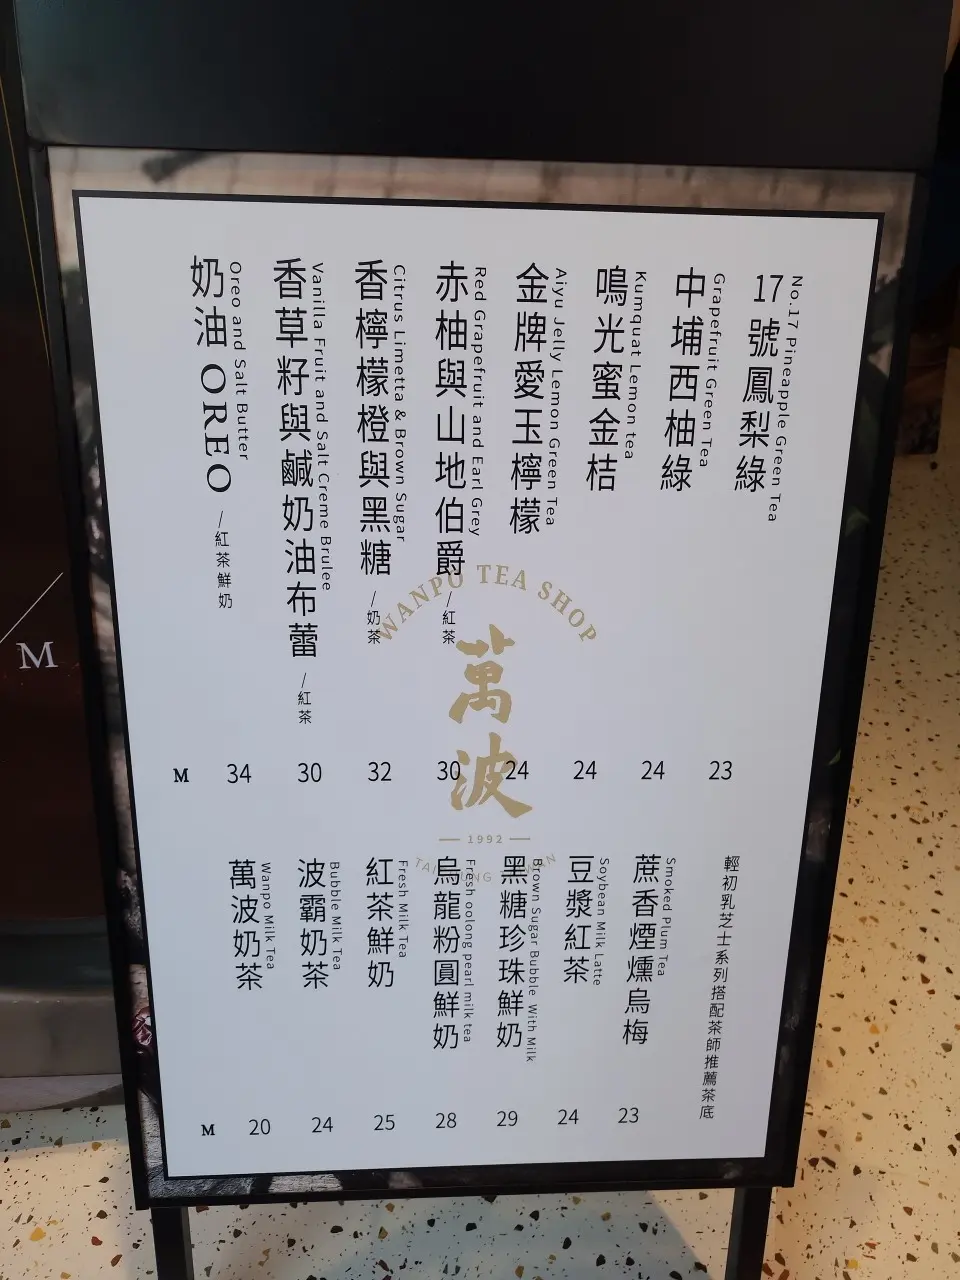 No.17 Pineapple Green Tea
17號鳳梨綠
Grapefruit Green Tea
中埔西柚綠
Kumquat Lemon tea
鳴光蜜金桔
Aiyu Jelly Lemon Green Tea
金牌愛玉檸檬
Red Grapefruit and Earl Grey
赤柚與山地伯爵/紅茶
Citrus Limetta & Brown Sugar
香檸檬橙與黑糖/奶茶
Vanilla Fruit and Salt Creme Brulee
香草籽與鹹奶油布蕾/紅茶
Oreo and Salt Butter
奶油OREO/紅茶鮮奶
M 34 30 32 30 24 24 24 23
WANPO TEA SHOP
萬波
1992
輕初乳芝士系列搭配茶師推薦茶底
Smoked Plum Tea
蔗香煙燻烏梅
Soybean Milk Latte
豆漿紅茶
Brown Sugar Bubble With Milk
黑糖珍珠鮮奶
Fresh oolong pearl milk tea
烏龍粉圓鮮奶
Fresh Milk Tea
紅茶鮮奶
Bubble Milk Tea
波霸奶茶
Wanpo Milk Tea
萬波奶茶
M 20 24 25 28 29 24 23
M